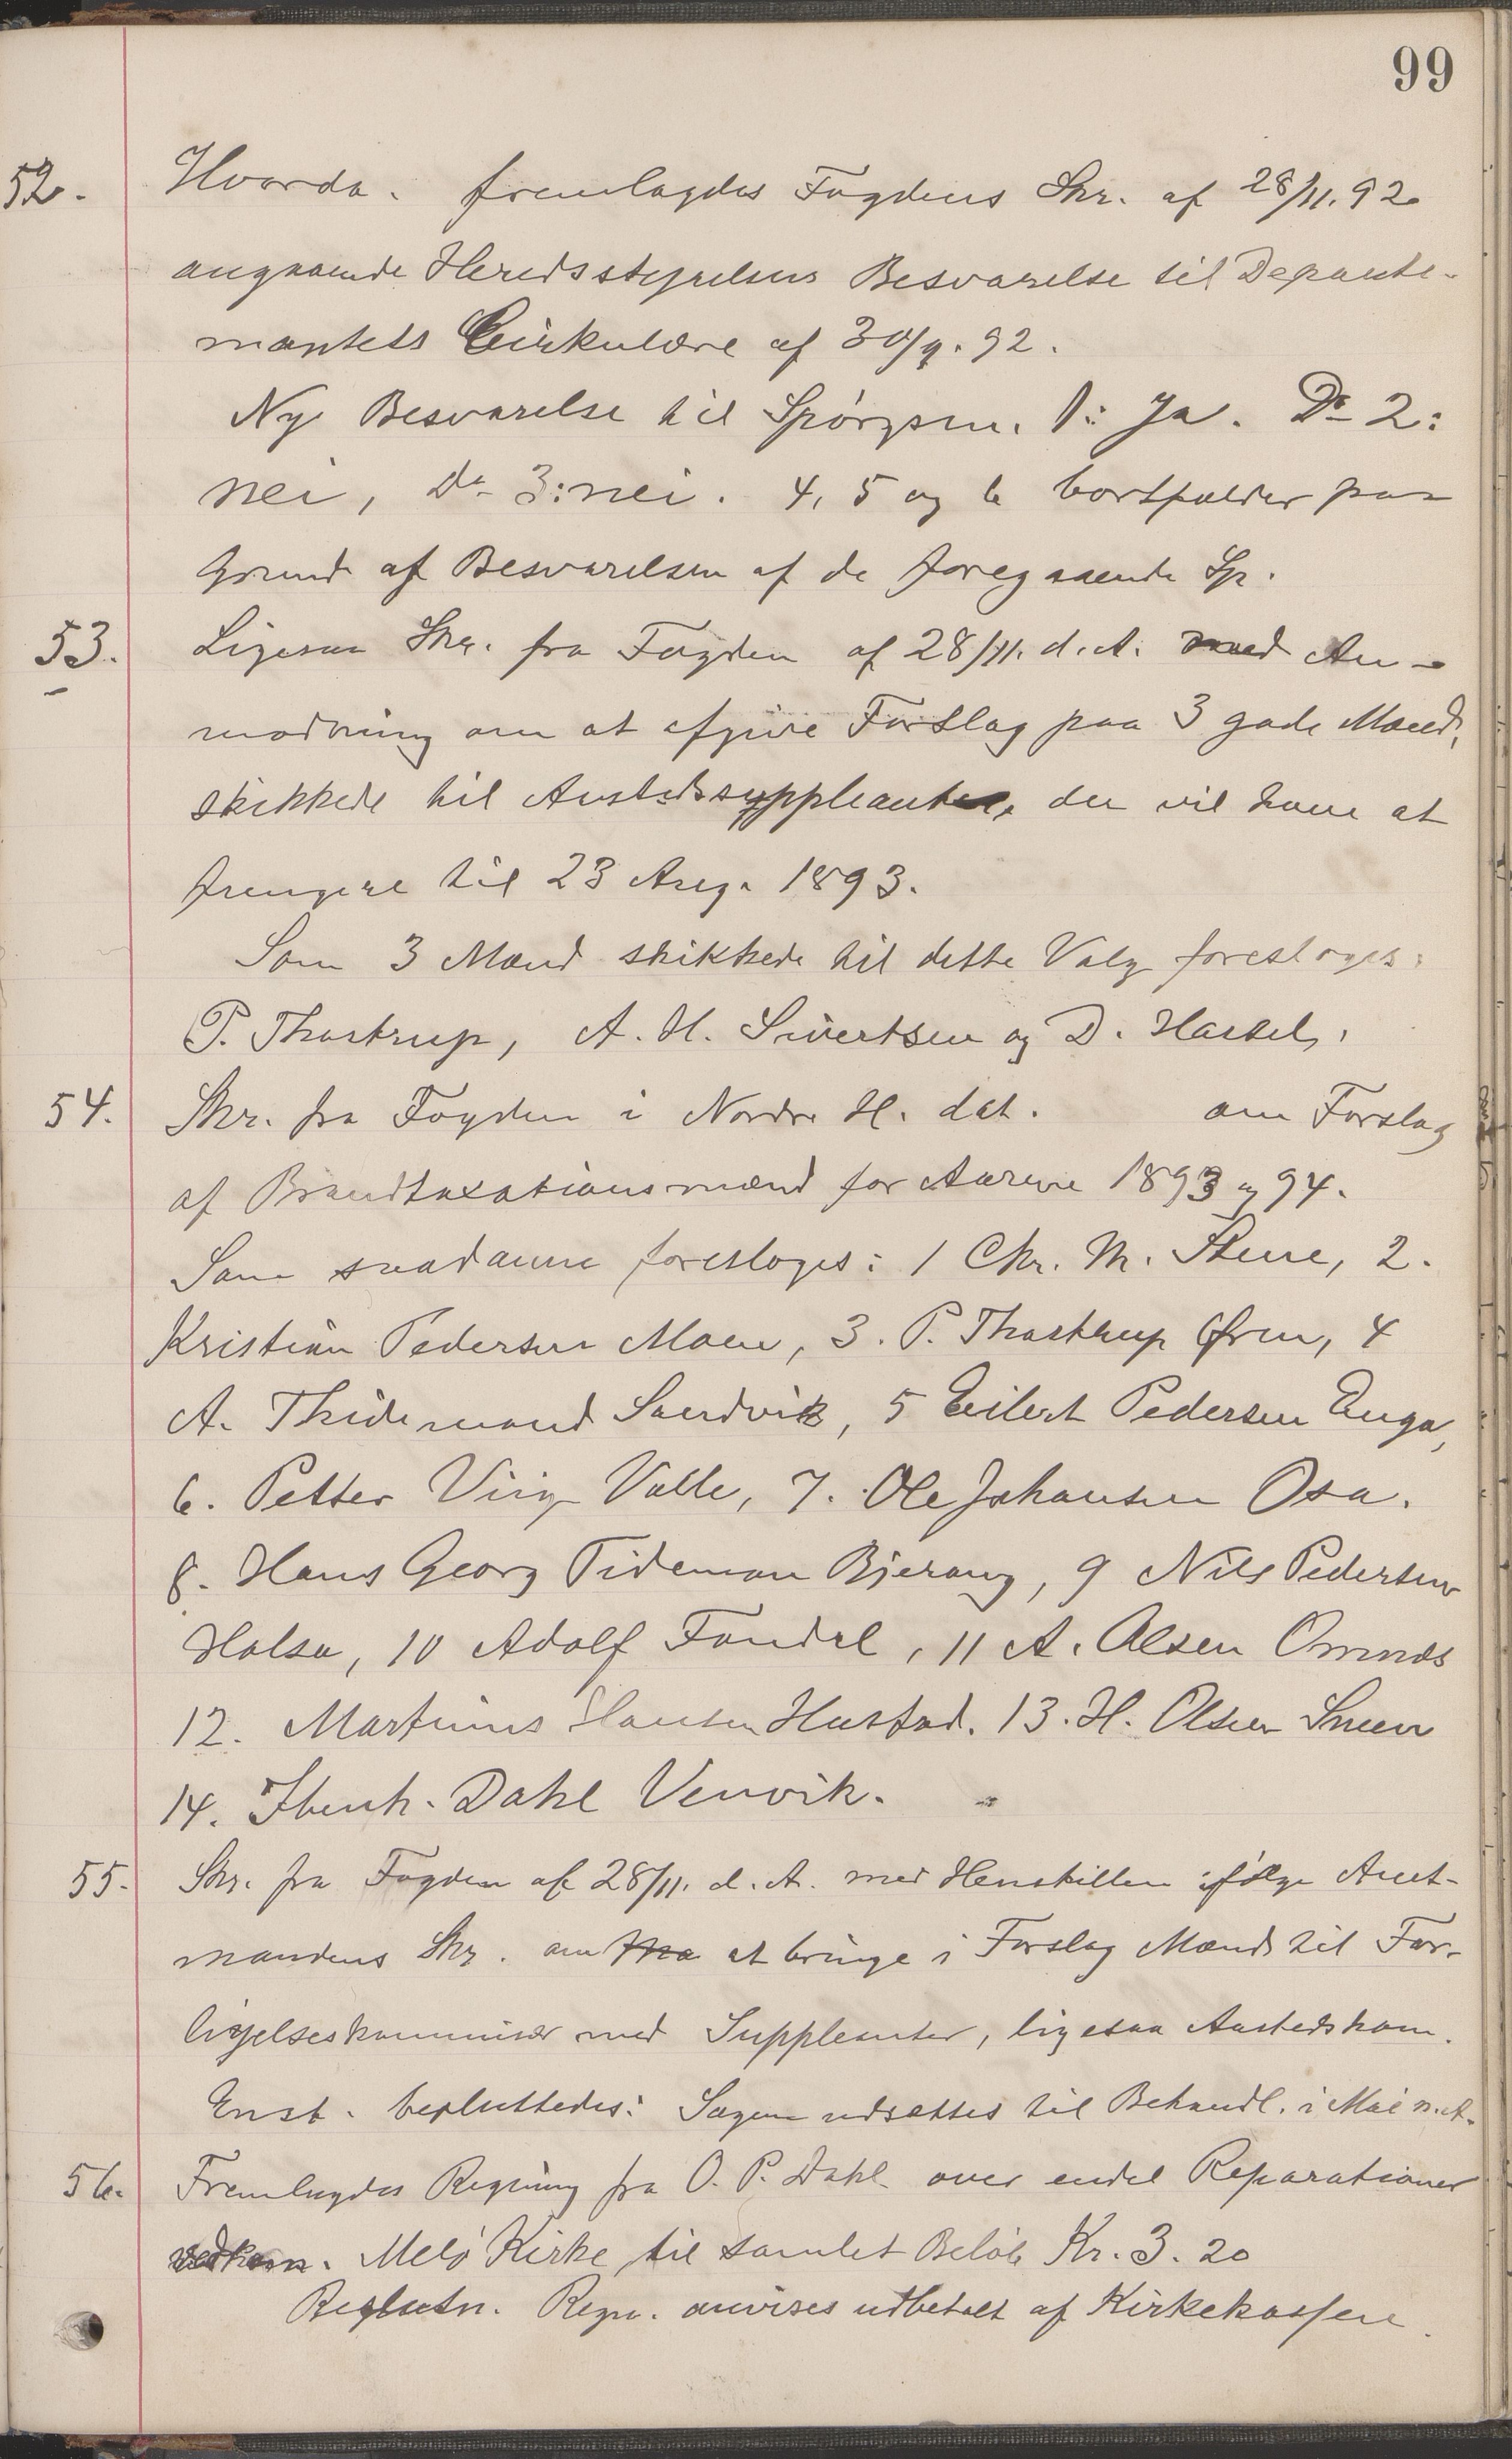 99
52. Hvorda. fremlagdes Fogdens Skr. af 28/11. 92
angaaende Heredsstyrelsens Besvarelse til Departe-
mentets Cirkulære af 30/9. 92.
Ny Besvarelse til Spörgsm. 1: Ja. Do 2:
nei, Do 3: nei. 4, 5 og 6 bortfalder paa
Grund af Besvarelsen af de foregaaende Sp.
53. Ligesaa Skr. fra Fogden af 28/11. d. A. med An-
modning om at afgive Forslag paa 3 gode Mænd,
skikkede til Anstedssuppleanter, der vil have at
fungere til 23 Aug. 1893.
Som 3 Mænd skikkede til dette Valg foresloges:
P. Thostrup, A. H. Sivertsen og D. Hassel.
54. Skr. fra Fogden i Nordre H. dat. om Forslag
af Brandtaxationsmænd for Aarene 1893 og 94.
Som saadanne foresloges: 1 Chr. M. Stene, 2.
Kristian Pedersen Moen, 3. P. Thostrup Ørn, 4
A. Thidemand Sandvik, 5 Eilert Pedersen Enga,
6. Petter Virg Valle, 7. Ole Johansen Osa.
8. Hans Georg Tideman Bjerang, 9 Nils Pedersen
Halsa, 10 Adolf Fondal, 11 A. Olsen Ornnes
12. Martinus Hansen Hustad. 13. H. Olsen Sneen
14. Ibenh. Dahl Venvik.
55. Skr. fra Fogden af 28/11. d. A. med Henstillen ifölge Amt-
mandens Skr. om at bringe i Forslag Mænd til For-
ligelseskommisær med Suppleanter, ligesaa Anstedskom.
Enst. besluttedes: Sagen udsættes til Behandl. i Mai n. A.
56. Fremlagdes Regning fra O. P. Dahl over endel Reparationer
vedkom. Melö Kirke til samlet Belöb Kr. 3. 20
Beslutn. Regn. anvises udbetalt af Kirkekassen.